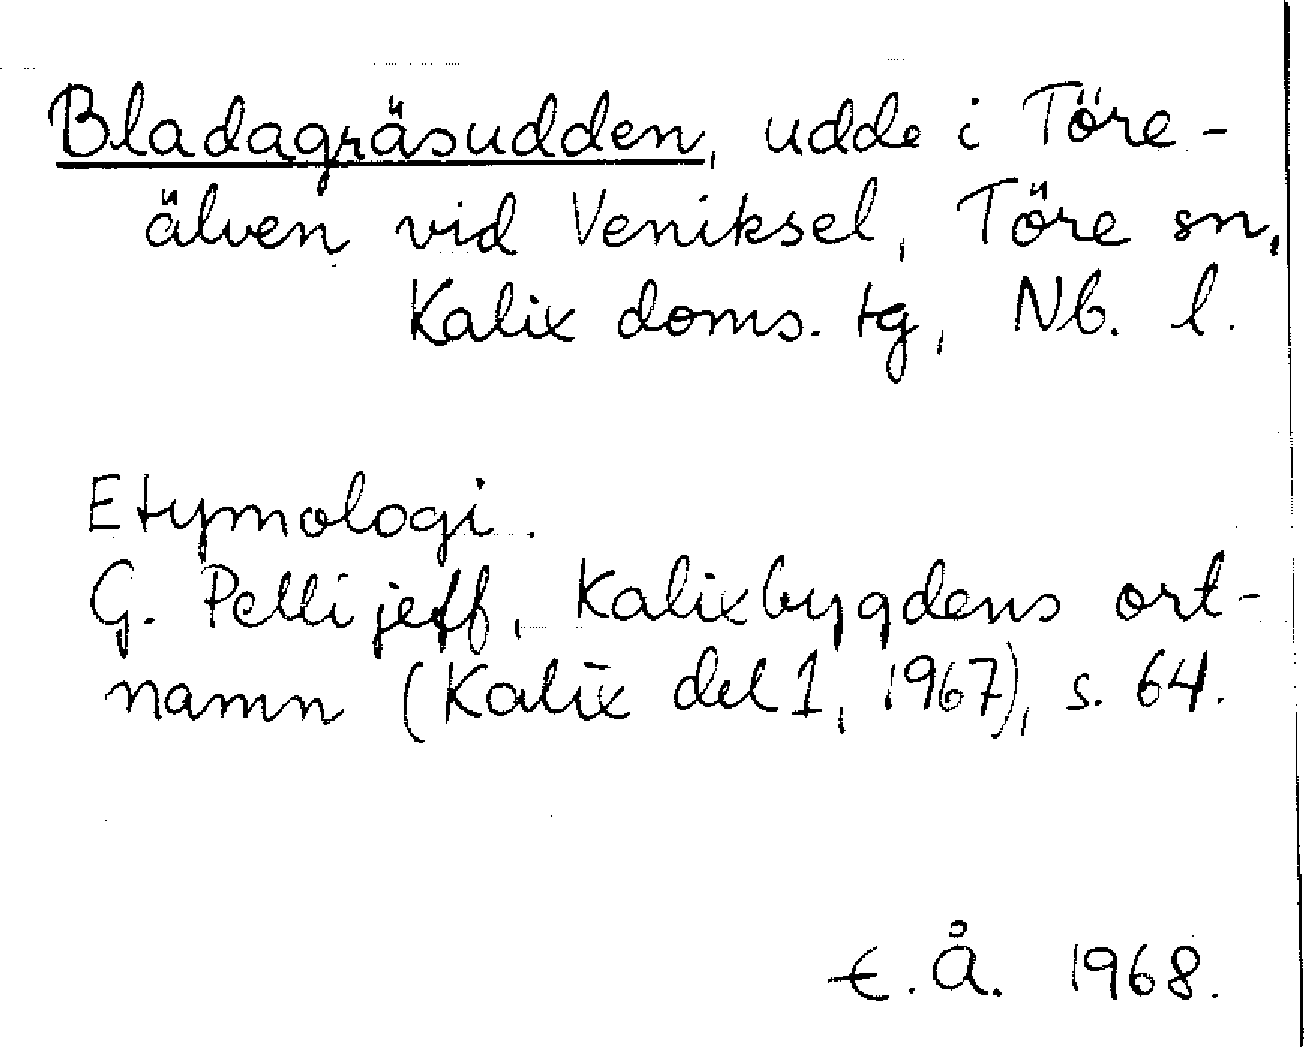 Bladagräsudden, udde i Töre-
älven vid Veniksel, Töre sn,
Kalix doms. tg, Nb. l.
Etymologi.
G. Pellijeff, Kalixbygdens ort-
namn (Kalix del 1, 1967), s. 64.
E. Å. 1968.